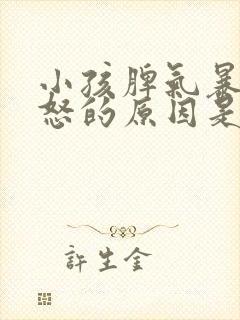 小孩脾气暴
怒的原因是
許生金